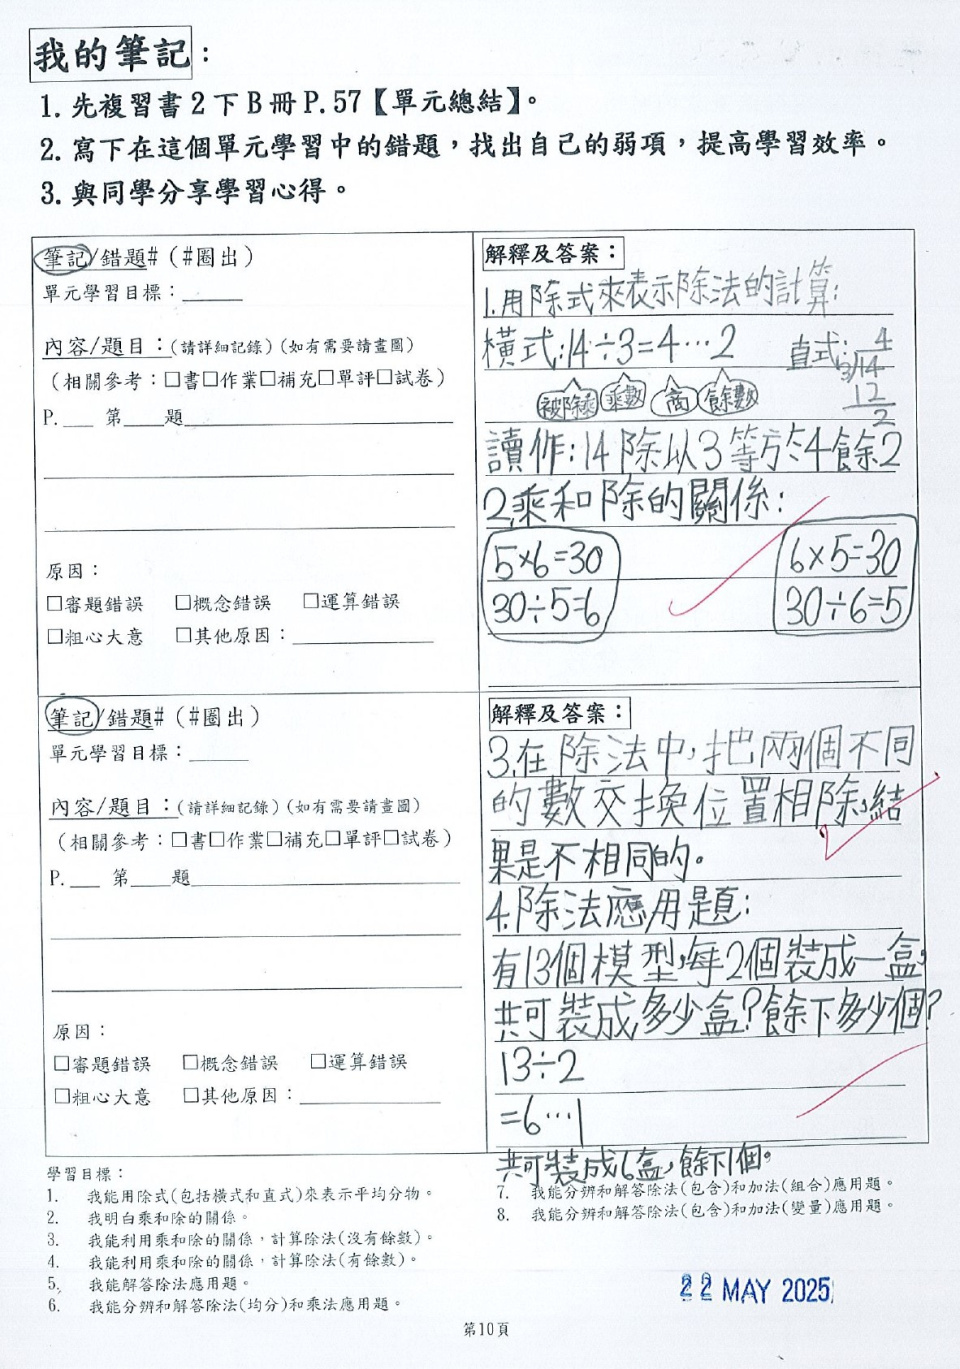 我的筆記：
1. 先複習書2下B冊P.57【單元總結】。
2. 寫下在這個單元學習中的錯題，找出自己的弱項，提高學習效率。
3. 與同學分享學習心得。
筆記/錯題#（#圈出）
單元學習目標：______
內容/題目：(請詳細記錄)(如有需要請畫圖)
（相關參考：□書□作業□補充□單評□試卷）
P.___ 第____題
原因：
□審題錯誤 □概念錯誤 □運算錯誤
□粗心大意 □其他原因：
解釋及答案：
1.用除式來表示除法的計算:
橫式:14÷3=4…2 直式: 4
3/14
被除數 乘數 商 餘數 12
2
讀作:14除以3等於4餘2
2.乘和除的關係:
5×6=30 6×5=30
30÷5=6 30÷6=5
筆記/錯題#（#圈出）
單元學習目標：______
內容/題目：(請詳細記錄)(如有需要請畫圖)
（相關參考：□書□作業□補充□單評□試卷）
P.___ 第____題
原因：
□審題錯誤 □概念錯誤 □運算錯誤
□粗心大意 □其他原因：
解釋及答案：
3.在除法中,把兩個不同
的數交換位置相除,結
果是不相同的。
4.除法應用題:
有13個模型,每2個裝成一盒,
共可裝成多少盒?餘下多少個?
13÷2
=6…1
共可裝成6盒,餘下1個。
學習目標：
1. 我能用除式(包括橫式和直式)來表示平均分物。
2. 我明白乘和除的關係。
3. 我能利用乘和除的關係，計算除法(沒有餘數)。
4. 我能利用乘和除的關係，計算除法(有餘數)。
5. 我能解答除法應用題。
6. 我能分辨和解答除法(均分)和乘法應用題。
7. 我能分辨和解答除法(包含)和加法(組合)應用題。
8. 我能分辨和解答除法(包含)和加法(變量)應用題。
22 MAY 2025
第10頁